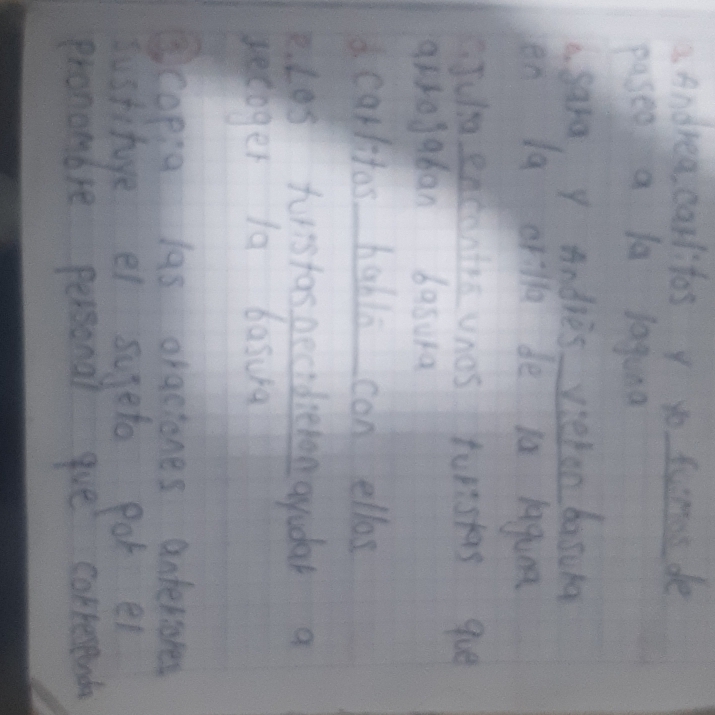 a. Andrea, carlitos y yo fuimos de
paseo a la laguna
b. sara y Andrés vieron basura
en la orilla de la laguna
c. Julia encontró unos turistas que
arrojaban basura
d. carlitos habló con ellos
e. Los turistas decidieron ayudar a
recoger la basura
2 Copia las oraciones anteriores
sustituye el sujeto por el
pronombre personal que corresponda